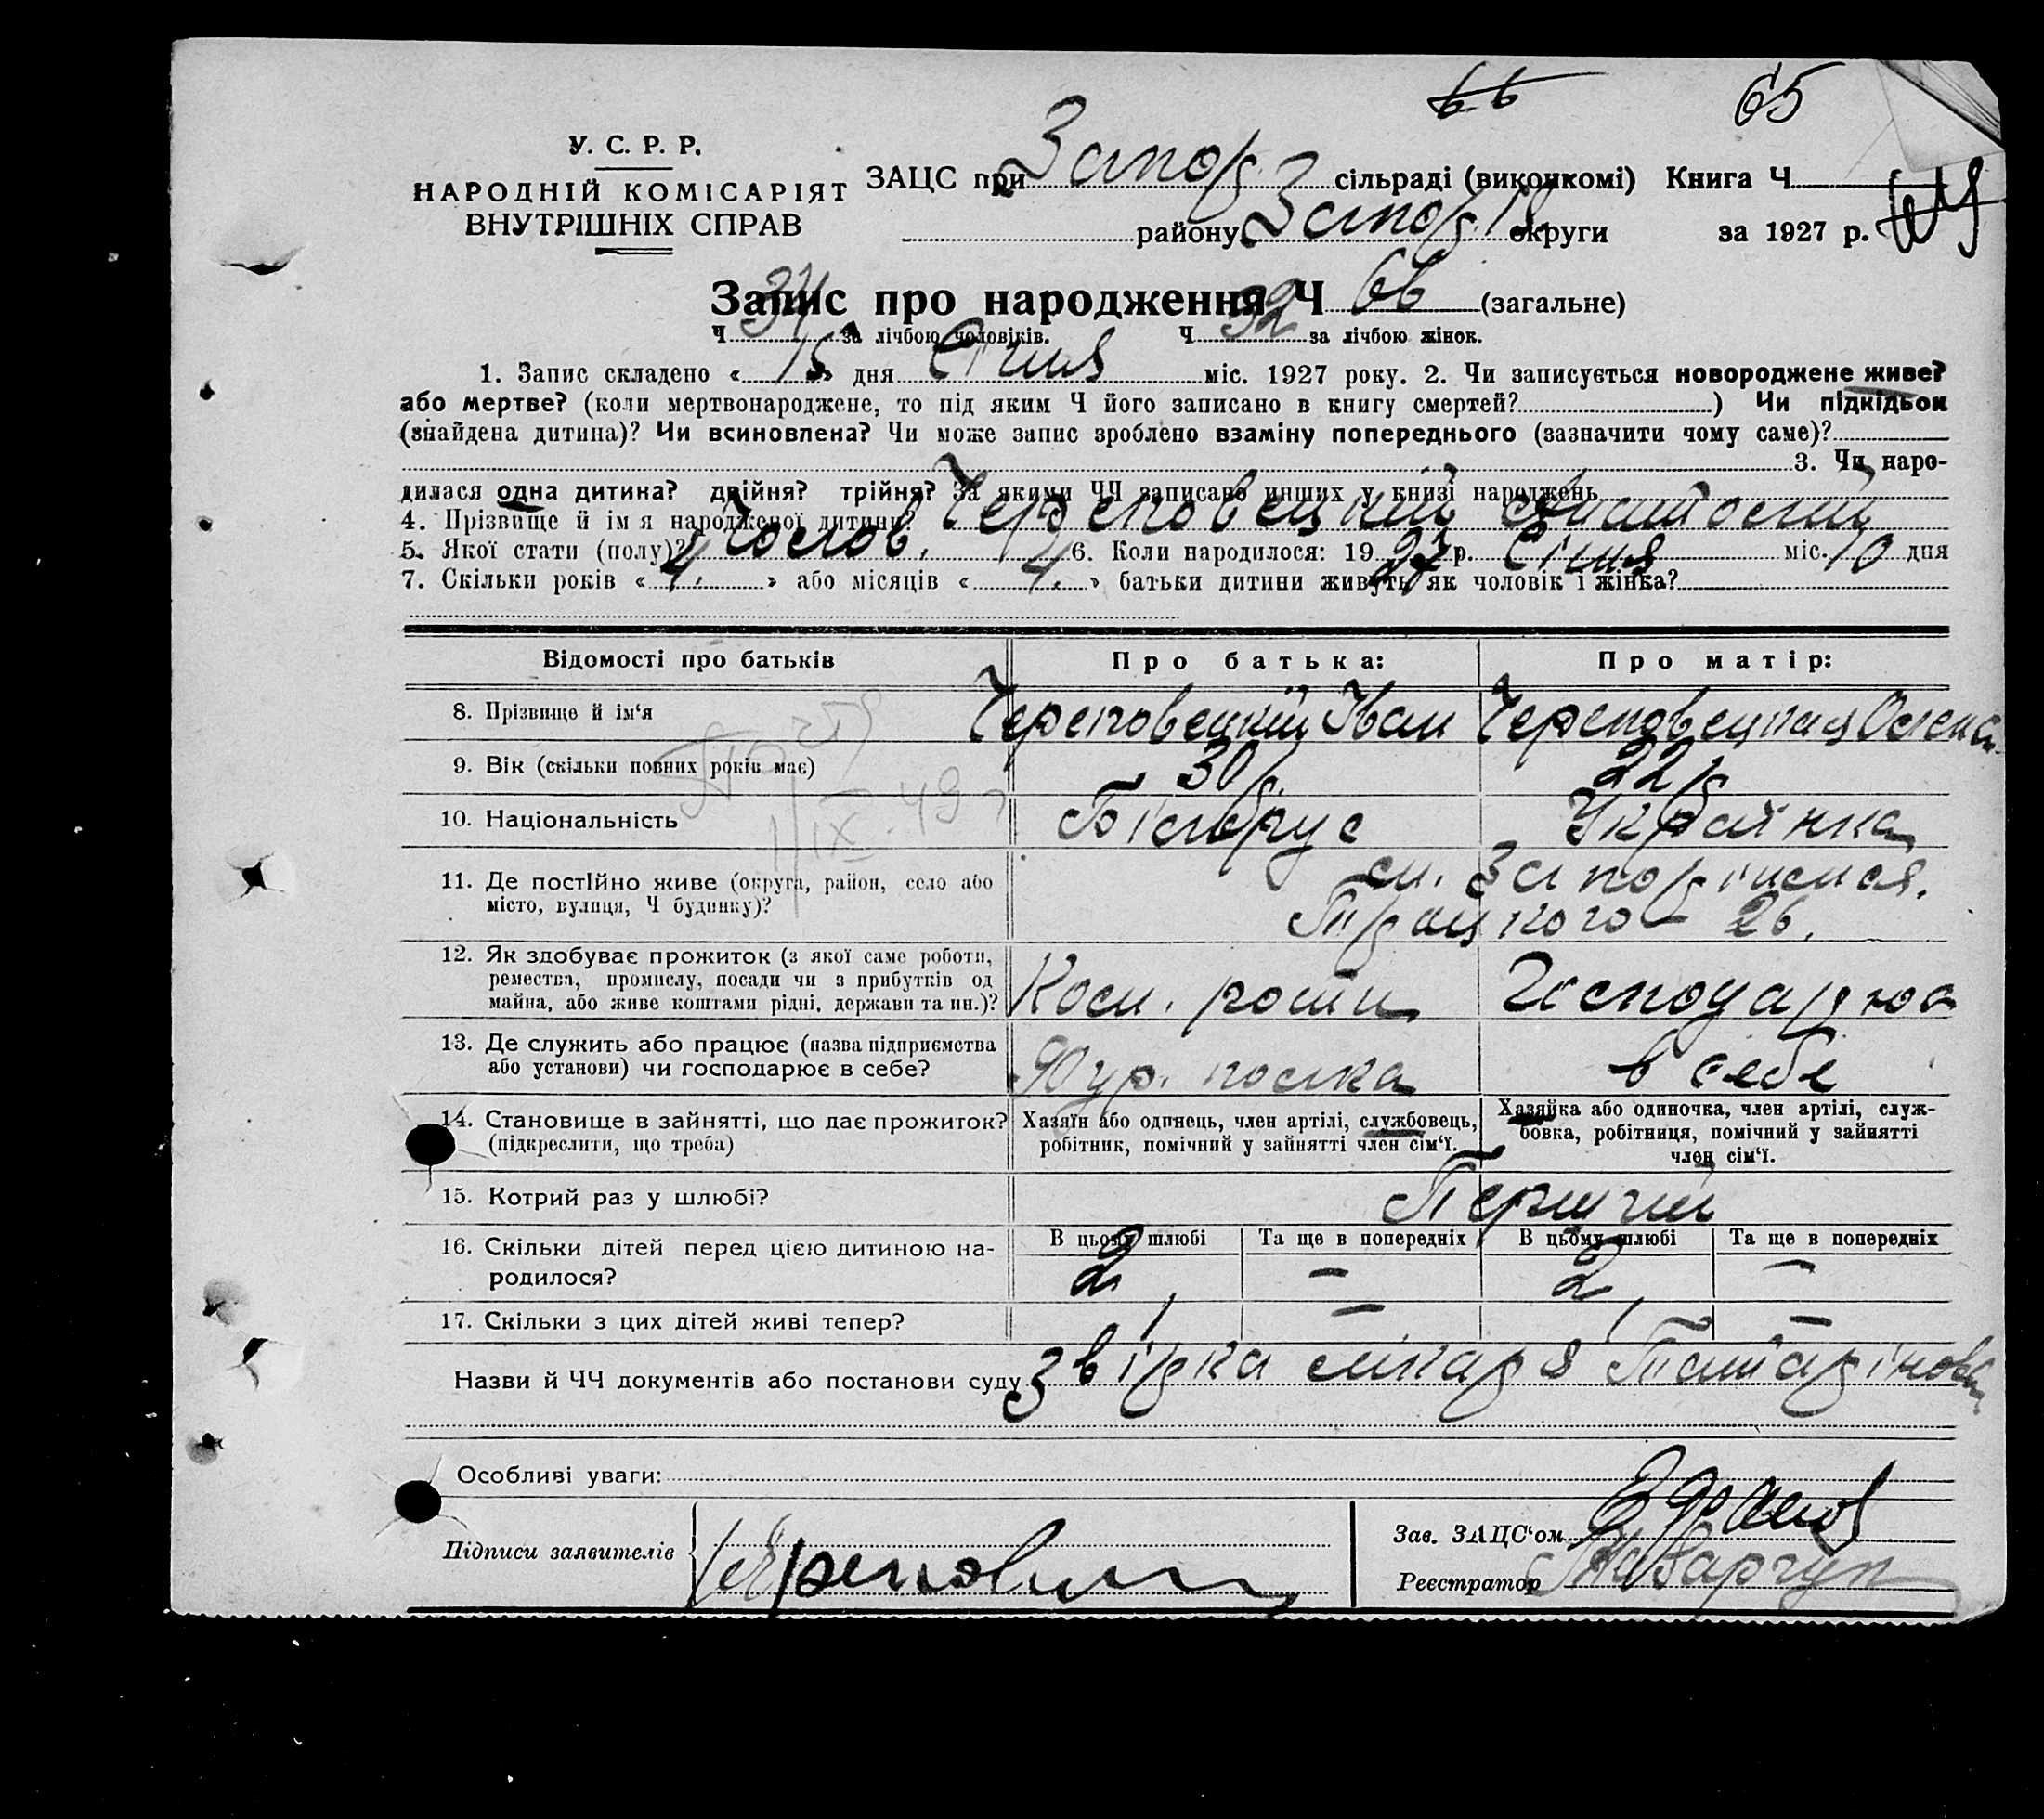 66 65
У. С. Р. Р.
НАРОДНІЙ КОМІСАРІЯТ
ВНУТРІШНІХ СПРАВ
ЗАЦС при Запор сільраді (виконкомі) Книга Ч
району Запор округи за 1927 р.
Запис про народження Ч 66 (загальне)
Ч 34 за лічбою чоловіків. Ч 32 за лічбою жінок.
1. Запис складено «15» дня Січня міс. 1927 року. 2. Чи записується новороджене живе?
або мертве? (коли мертвонароджене, то під яким Ч його записано в книгу смертей?) Чи підкідьок
(знайдена дитина)? Чи всиновлена? Чи може запис зроблено взаміну попереднього (зазначити чому саме)?
3. Чи наро-
дилася одна дитина? двійня? трійня? За якими ЧЧ записано инших у книзі народжень
4. Прізвище й ім'я народженої дитини? Череповецкий Анатолий
5. Якої стати (полу)? Чолов. 6. Коли народилося: 1927 р. Січня міс. 10 дня
7. Скільки років «4» або місяців «4» батьки дитини живуть як чоловік і жінка?
Відомості про батьків Про батька: Про матір:
8. Прізвище й ім'я Череповецкий Іван Череповецкая
9. Вік (скільки повних років має) 30 р. 22 р.
10. Національність Білорус Українка
11. Де постійно живе (округа, район, село або
місто, вулиця, Ч будинку)? м. Запоріжжя.
Троцкого 26.
12. Як здобуває прожиток (з якої саме роботи,
ремества, промислу, посади чи з прибутків од
майна, або живе коштами рідні, держави та ин.)? Ком. роти Господарює
13. Де служить або працює (назва підприємства
або установи) чи господарює в себе? полка в себе
14. Становище в зайнятті, що дає прожиток?
(підкреслити, що треба)
Хазяїн або одинець, член артілі, службовець,
робітник, помічний у зайнятті член сім'ї.
Хазяйка або одиночка, член артілі, служ-
бовка, робітниця, помічний у зайнятті
член сім'ї.
15. Котрий раз у шлюбі? Перший
16. Скільки дітей перед цією дитиною на-
родилося?
В цьому шлюбі Та ще в попередніх В цьому шлюбі Та ще в попередніх
2 — 2 —
17. Скільки з цих дітей живі тепер? 1 — 1 —
Назви й ЧЧ документів або постанови суду Звірка лікаря Татарінова
Особливі уваги:
Підписи заявителів
Зав. ЗАЦС'ом
Реєстратор